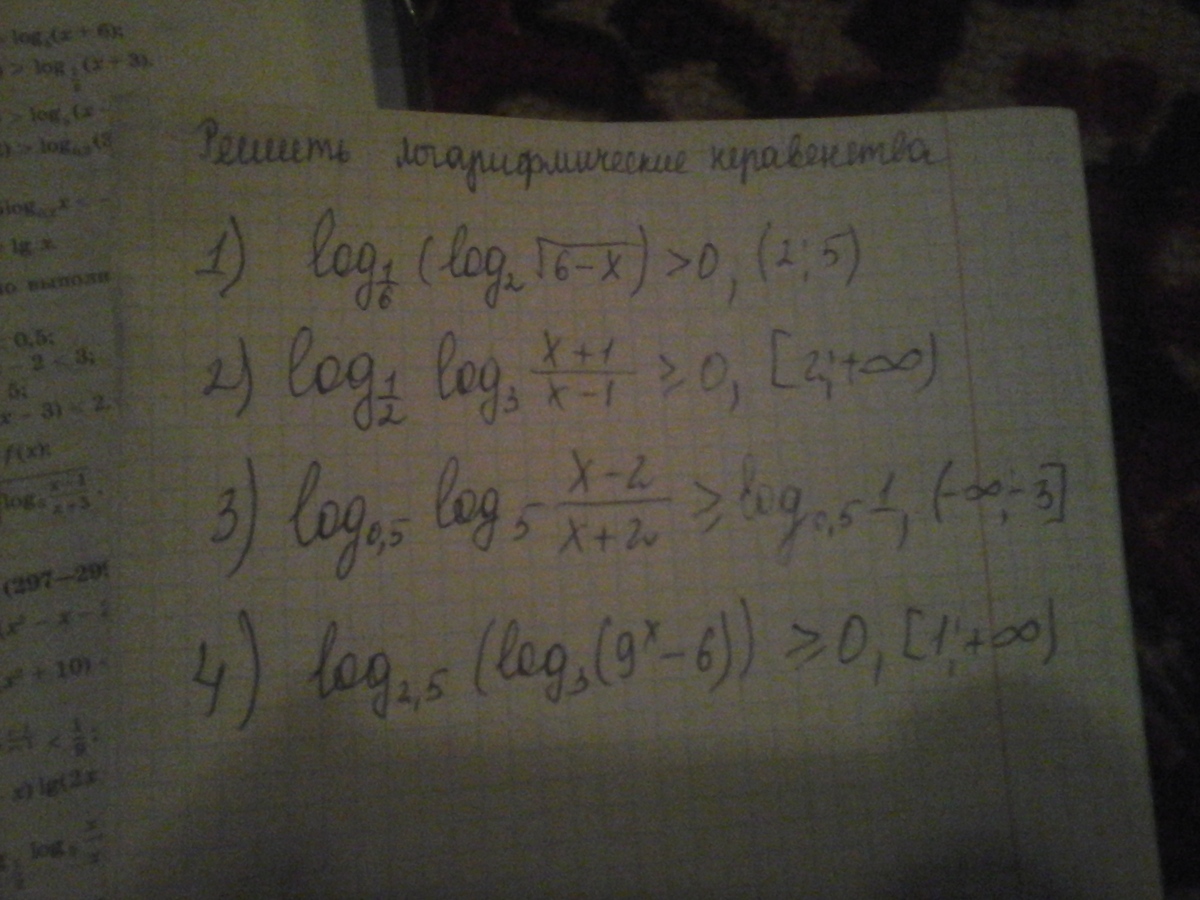 > log (x + 6);
> log 1/2 (x + 3).
> log
lg x.
0,5;
2 < 3;
5;
x − 3) < 2.
f(x);
log x−1/x+3.
(297—29
x² − x −
x² + 10)
< 1/9;
x) lg(2x
log
Решить логарифмические неравенства
1) log_{1/6} (log_2 √(6−x)) >0, (2; 5)
2) log_{1/2} log_3 (x+1)/(x−1) ≥ 0, [2; +∞)
3) log_{0,5} log_5 (x−2)/(x+2) ≥ log_{0,5} 1, (−∞; −3]
4) log_{2,5} (log_3 (9^x − 6)) ≥ 0, [1; +∞)